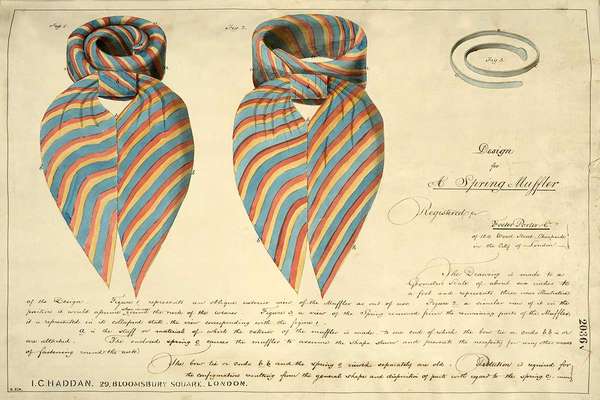 Fig 1.
Fig 2.
Fig 3.
Design
for
A Spring Muffler
Registered for
Foster Porter & Co
of 47 Wood Street, Cheapside
in the City of London
The Drawing is made to a
Geometric Scale of about six inches to
a foot and represents three illustrations
of the Design Figure 1 represents an oblique exterior view of the Muffler as out of use. Figure 2 a similar view of it in the
position it would assume round the neck of the wearer Figure 3 a view of the Spring removed from the remaining parts of the Muffler,
it is represented in its collapsed state the view corresponding with the figure 1.
A is the stuff or material of which the exterior of the muffler is made to one end of which the bow tie or ends b,b is or
are attached. The enclosed spring c causes the muffler to assume the shape shewn and prevents the necessity for any other means
of fastening round the neck.
The bow tie or ends b b and the spring c inside separately are old. Protection is required for
the configuration resulting from the general shape and disposition of parts with regard to the spring c.
2086
I.C. HADDAN. 29, BLOOMSBURY SQUARE, LONDON.